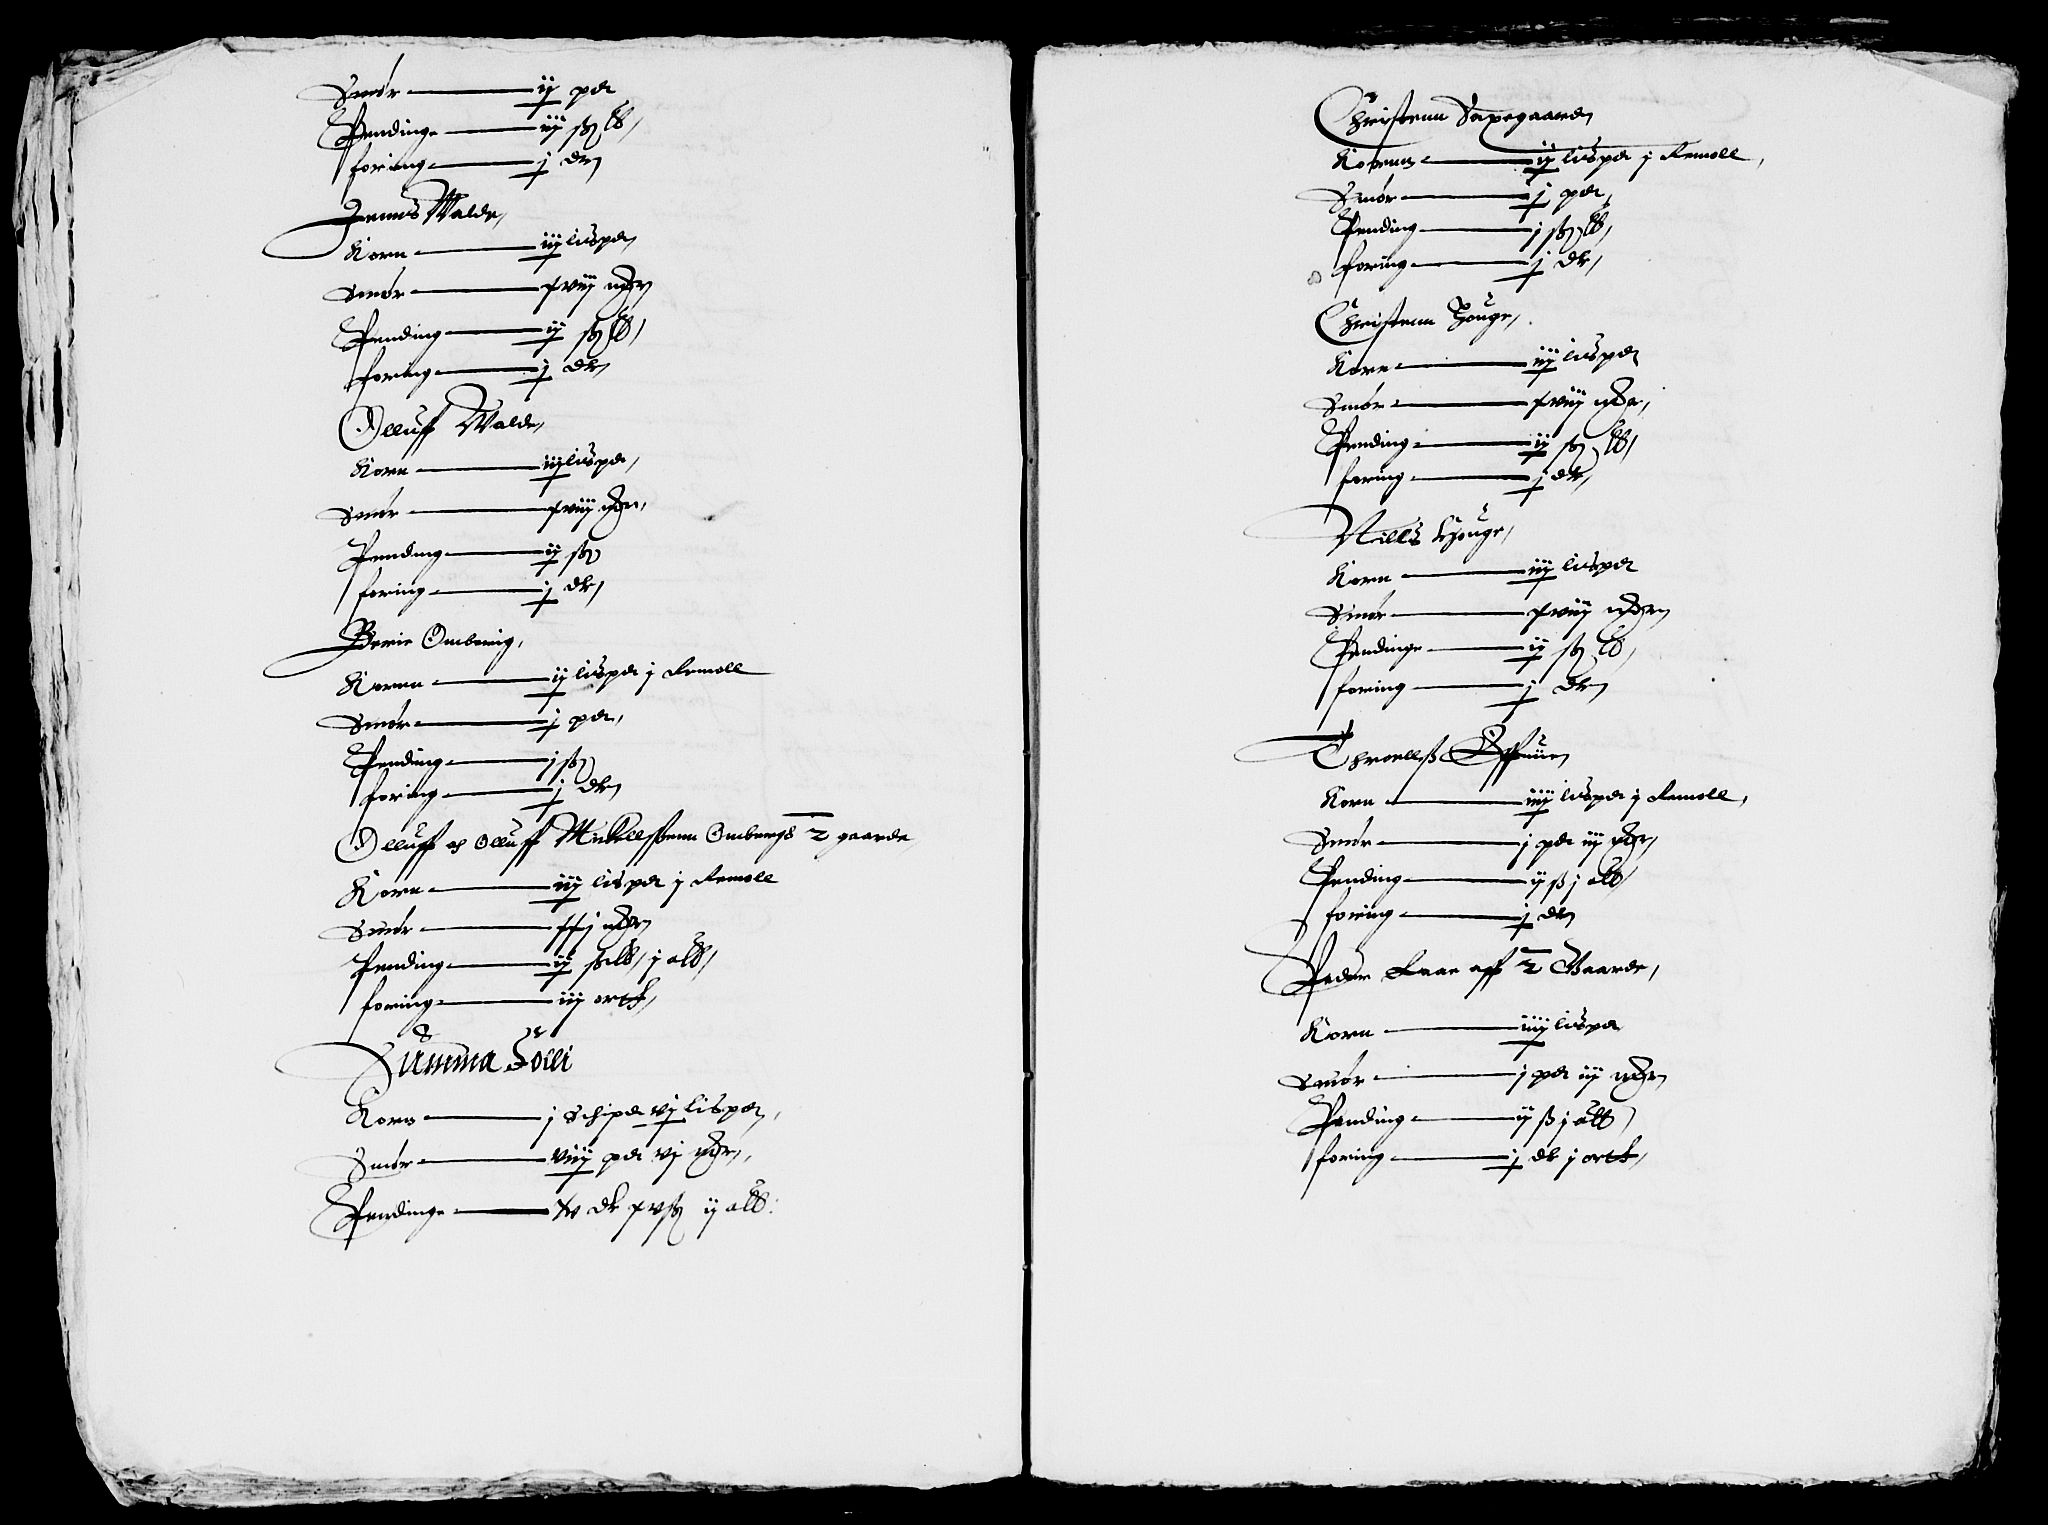 Smør ij pd
Pendinge iij sß lb,
foring j dr
Jenns Walde,
Korn iij lispd
Smør xviij mkr
Pending ij sß lb,
foring j dr
Olluff Walde,
Korn iij lispd,
Smør xviij mkr,
Pending ij sß
foring j dr,
Berie Ombering,
Korenn ij lispd j Remoll
Smør j pd,
Pending j sß
foring j dr
Olluff och Olluff Mickellssenn Ombergs 2 gaarde
Korn iij lispd j Remoll
Smør xxj mkr
Pending ij j alb,
foring iij ortt,
Summa Solli
Korn j schipd vj lispd,
Smør viij pd vj mkr,
Pendinge dr sß ij alb:
Christenn Sapegaardt
Koornn ij lispd j Remoll,
Smør j pd,
Pending j sß lb,
foring j dr,
Christenn Houge,
Korn iij lispd
Smør xviij mkr,
Pending ij sß lb,
foring j dr,
Niells Houge,
Korn iij lispd
Smør xviij mkr
Pendinge ij sß lb,
foring j dr
Throellss
Korn iiij lispd j Remoll,
Smør j pd iij mkr,
Pending ij ß j alb
foring j dr
Peder aff 2 Gaarde,
Korn iiij lispd
Smør j pd iij mkr
Pending ij ß j alb
foring j dr j ortt,